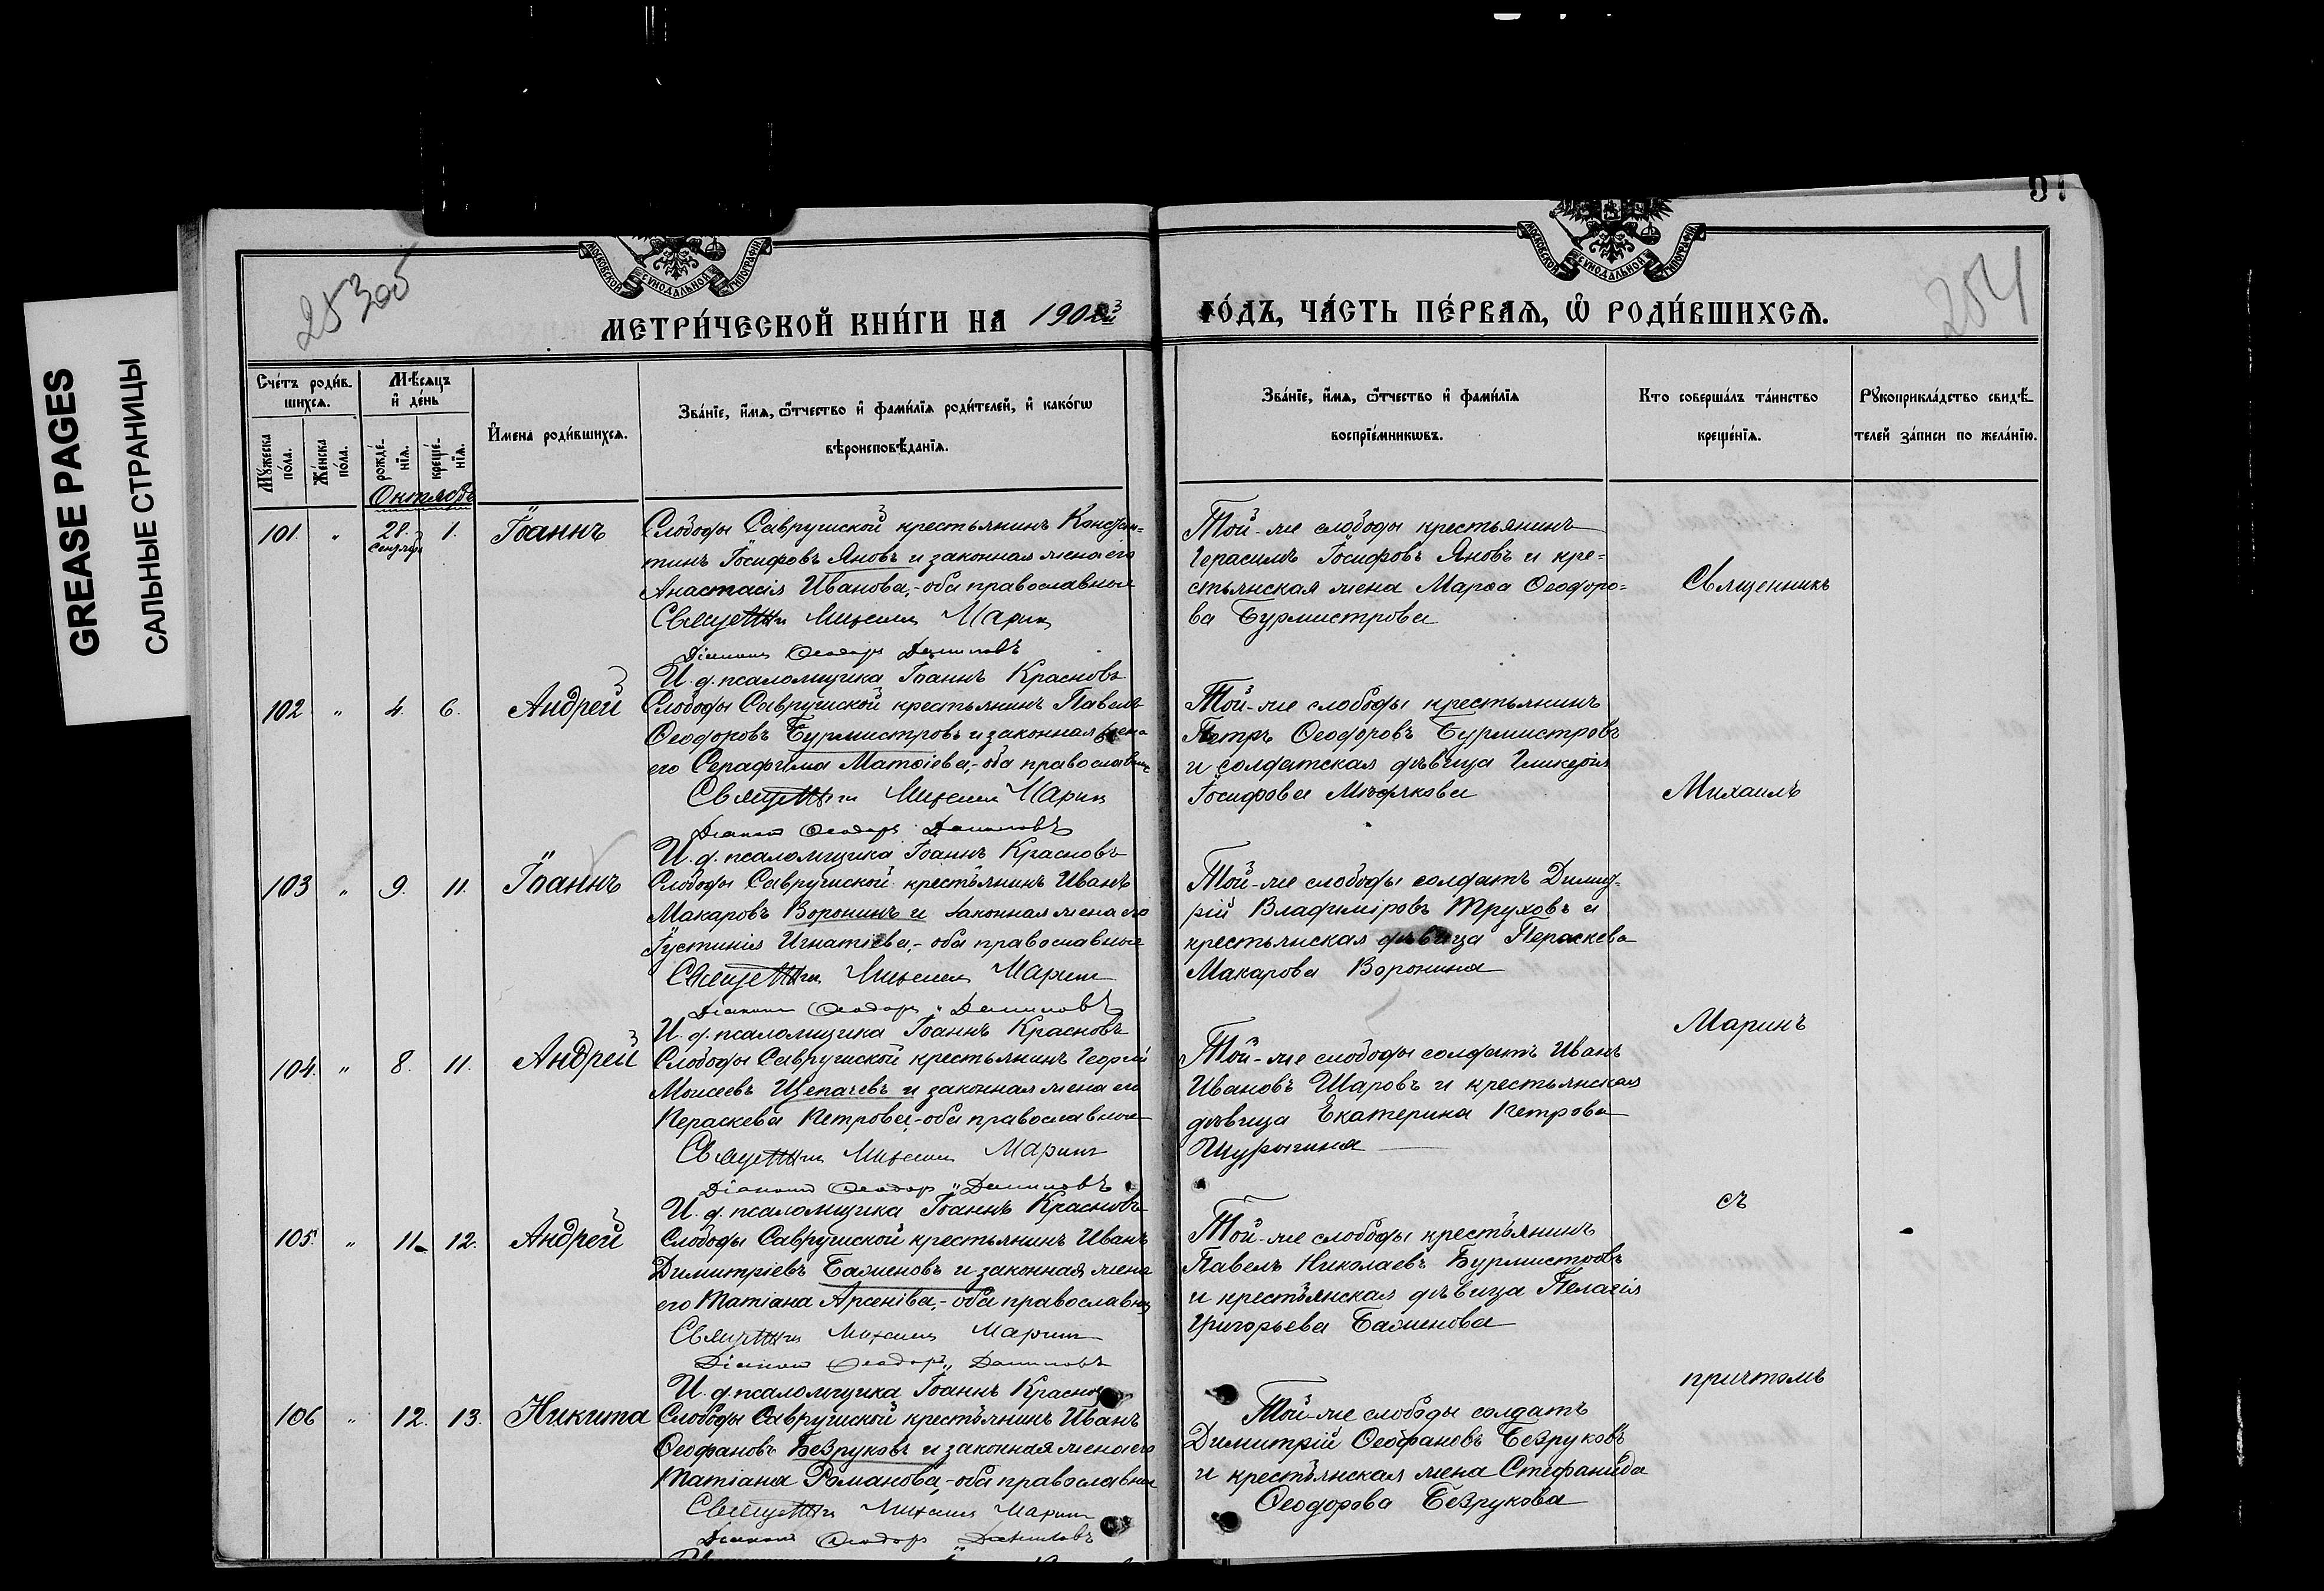 GREASE PAGES
САЛЬНЫЕ СТРАНИЦЫ
25300
254
МОСКОВСКОЙ СУНОДАЛЬНОЙ ТИПОГРАФІИ
МОСКОВСКОЙ СУНОДАЛЬНОЙ ТИПОГРАФІИ
МЕТРИ́ЧЕСКОЙ КНИ́ГИ НА 1903
ГО́ДЪ, ЧА́СТЬ ПЕ́РВАѦ, Ѡ҆ РОДИ́ВШИХСѦ.
Сче́тъ роди́в-
шихсѧ.
Мꙋ́жеска
по́ла.
Же́нска
по́ла.
Мѣ́сѧцъ
и҆ де́нь
рожде́-
нїѧ.
креще́-
нїѧ.
И҆мена роди́вшихсѧ.
Зва́нїе, и҆́мѧ, ѻ҆́тчество и҆ фами́лїѧ роди́телей, и҆ како́гѡ
вѣроисповѣ́данїѧ.
Зва́нїе, и҆́мѧ, ѻ҆́тчество и҆ фами́лїѧ
воспрїе́мникѡвъ.
Кто соверша́лъ та́инство
креще́нїѧ.
Рꙋкоприкла́дство свидѣ́-
телей за́писи по жела́нїю.
Октябрь
101. " 28. Сентября 1. Іоаннъ
Слободы Саврушской крестьянинъ Констан-
тинъ Іосифовъ Яновъ и законная жена его
Анастасія Иванова,- оба православные
Священникъ Михаилъ Маринъ
Діаконъ Ѳеодоръ Даниловъ
И. д. псаломщика Іоаннъ Красновъ
Той-же слободы крестьянинъ
Герасимъ Іосифовъ Яновъ и кре-
стьянская жена Марѳа Ѳеодоро-
ва Бурмистрова
Священникъ
102 " 4. 6. Андрей
Слободы Саврушской крестьянинъ Павелъ
Ѳеодоровъ Бурмистровъ и законная жена
его Серафима Матѳіева,- оба православные
Священникъ Михаилъ Маринъ
Діаконъ Ѳеодоръ Даниловъ
И. д. псаломщика Іоаннъ Красновъ
Той-же слободы крестьянинъ
Петръ Ѳеодоровъ Бурмистровъ
и солдатская дѣвица Гликерія
Іосифова
Михаилъ
103 " 9. 11. Іоаннъ
Слободы Саврушской крестьянинъ Иванъ
Макаровъ Воронинъ и законная жена его
Іустинія Игнатіева,- оба православные
Священникъ Михаилъ Маринъ
Діаконъ Ѳеодоръ Даниловъ
И. д. псаломщика Іоаннъ Красновъ
Той-же слободы солдатъ Димит-
рій Владиміровъ Труховъ и
крестьянская дѣвица Пераскева
Макарова Воронина
Маринъ
104. " 8. 11. Андрей
Слободы Саврушской крестьянинъ Георгій
Моисеевъ Щепачевъ и законная жена его
Пераскева Петрова,- оба православные
Священникъ Михаилъ Маринъ
Діаконъ Ѳеодоръ Даниловъ
И. д. псаломщика Іоаннъ Красновъ
Той-же слободы солдатъ Иванъ
Ивановъ Шаровъ и крестьянская
дѣвица Екатерина Петрова
Шурыгина
съ
105. " 11. 12. Андрей
Слободы Саврушской крестьянинъ Иванъ
Димитріевъ Баженовъ и законная жена
его Татіана Арсеніва,- оба православные
Священникъ Михаилъ Маринъ
Діаконъ Ѳеодоръ Даниловъ
И. д. псаломщика Іоаннъ Красновъ
Той-же слободы крестьянинъ
Павелъ Николаевъ Бурмистровъ
и крестьянская дѣвица Пелагія
Григорьева Баженова
причтомъ
106 " 12. 13. Никита
Слободы Саврушской крестьянинъ Иванъ
Ѳеофановъ Безруковъ и законная жена его
Татіана Романова,- оба православные
Священникъ Михаилъ Маринъ
Діаконъ Ѳеодоръ Даниловъ
Той-же слободы солдатъ
Димитрій Ѳеофановъ Безруковъ
и крестьянская жена Стефанида
Ѳеодорова Безрукова